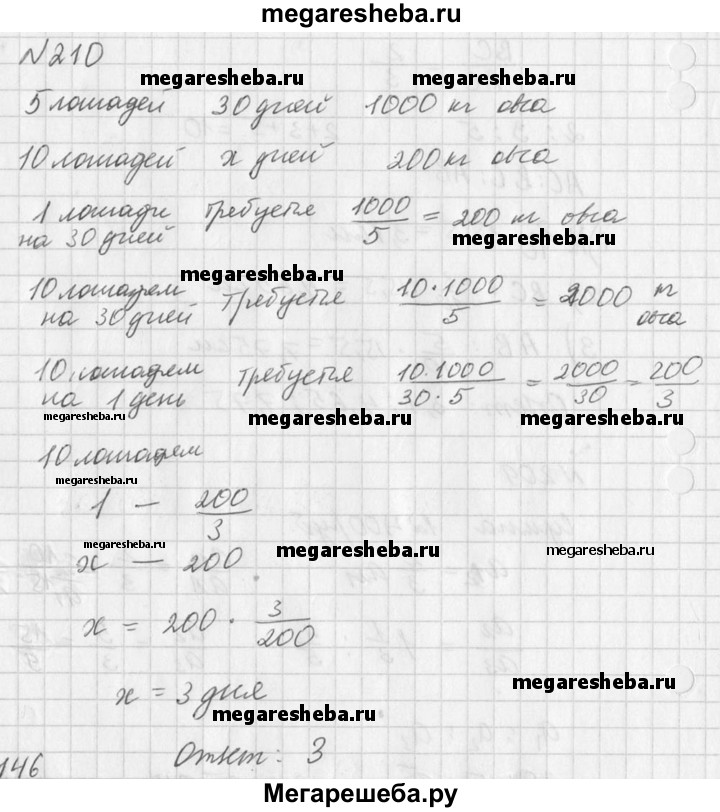 megaresheba.ru
N210
megaresheba.ru megaresheba.ru
5 лошадей 30 дней 1000 кг овса
10 лошадей x дней 200 кг овса
1 лошади требуется 1000/5 = 200 кг овса
на 30 дней
megaresheba.ru
megaresheba.ru
10 лошадям требуется 10·1000/5 = 2000 кг
на 30 дней овса
megaresheba.ru
10 лошадям требуется 10·1000/30·5 = 2000/30 = 200/3
на 1 день
megaresheba.ru megaresheba.ru megaresheba.ru
10 лошадям
megaresheba.ru
1 — 200/3
megaresheba.ru megaresheba.ru megaresheba.ru
x — 200
x = 200 · 3/200
x = 3 дня
megaresheba.ru
megaresheba.ru
Ответ: 3
146
megaresheba.ru
Мегарешеба.ру